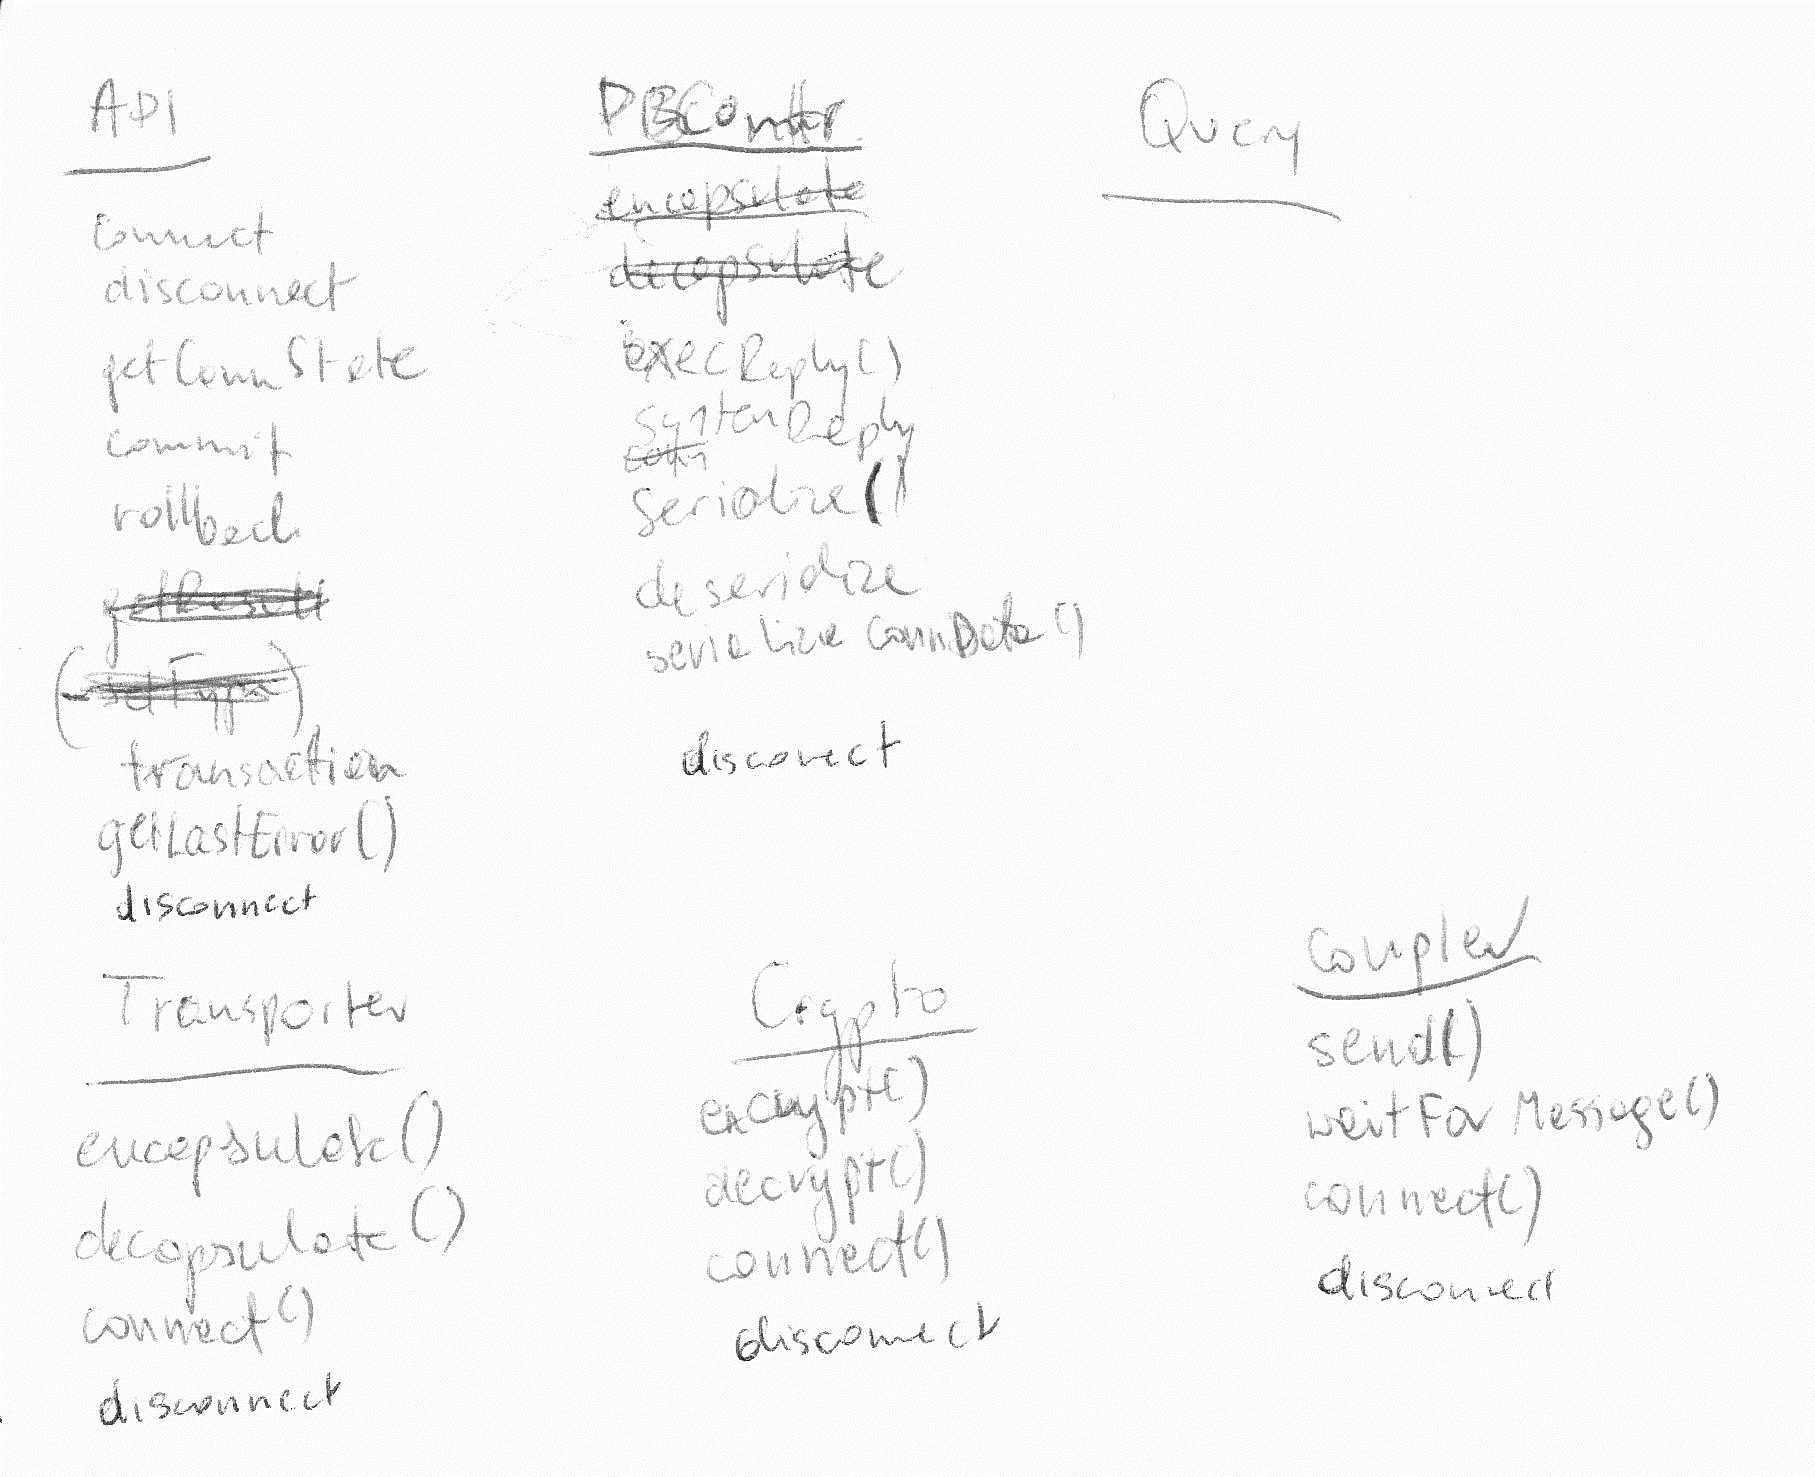 API
connect
disconnect
getConnState
commit
rollback
getResult
(setType)
transaction
getLastError()
disconnect
DBContr
encapsulate
decapsulate
execReply()
systemReply
serialize()
deserialize
serialize ConnData()
disconect
Query
Transporter
encapsulate()
decapsulate()
connect()
disconnect
Crypto
encrypt()
decrypt()
connect()
disconnect
Coupler
send()
waitForMessage()
connect()
disconnect